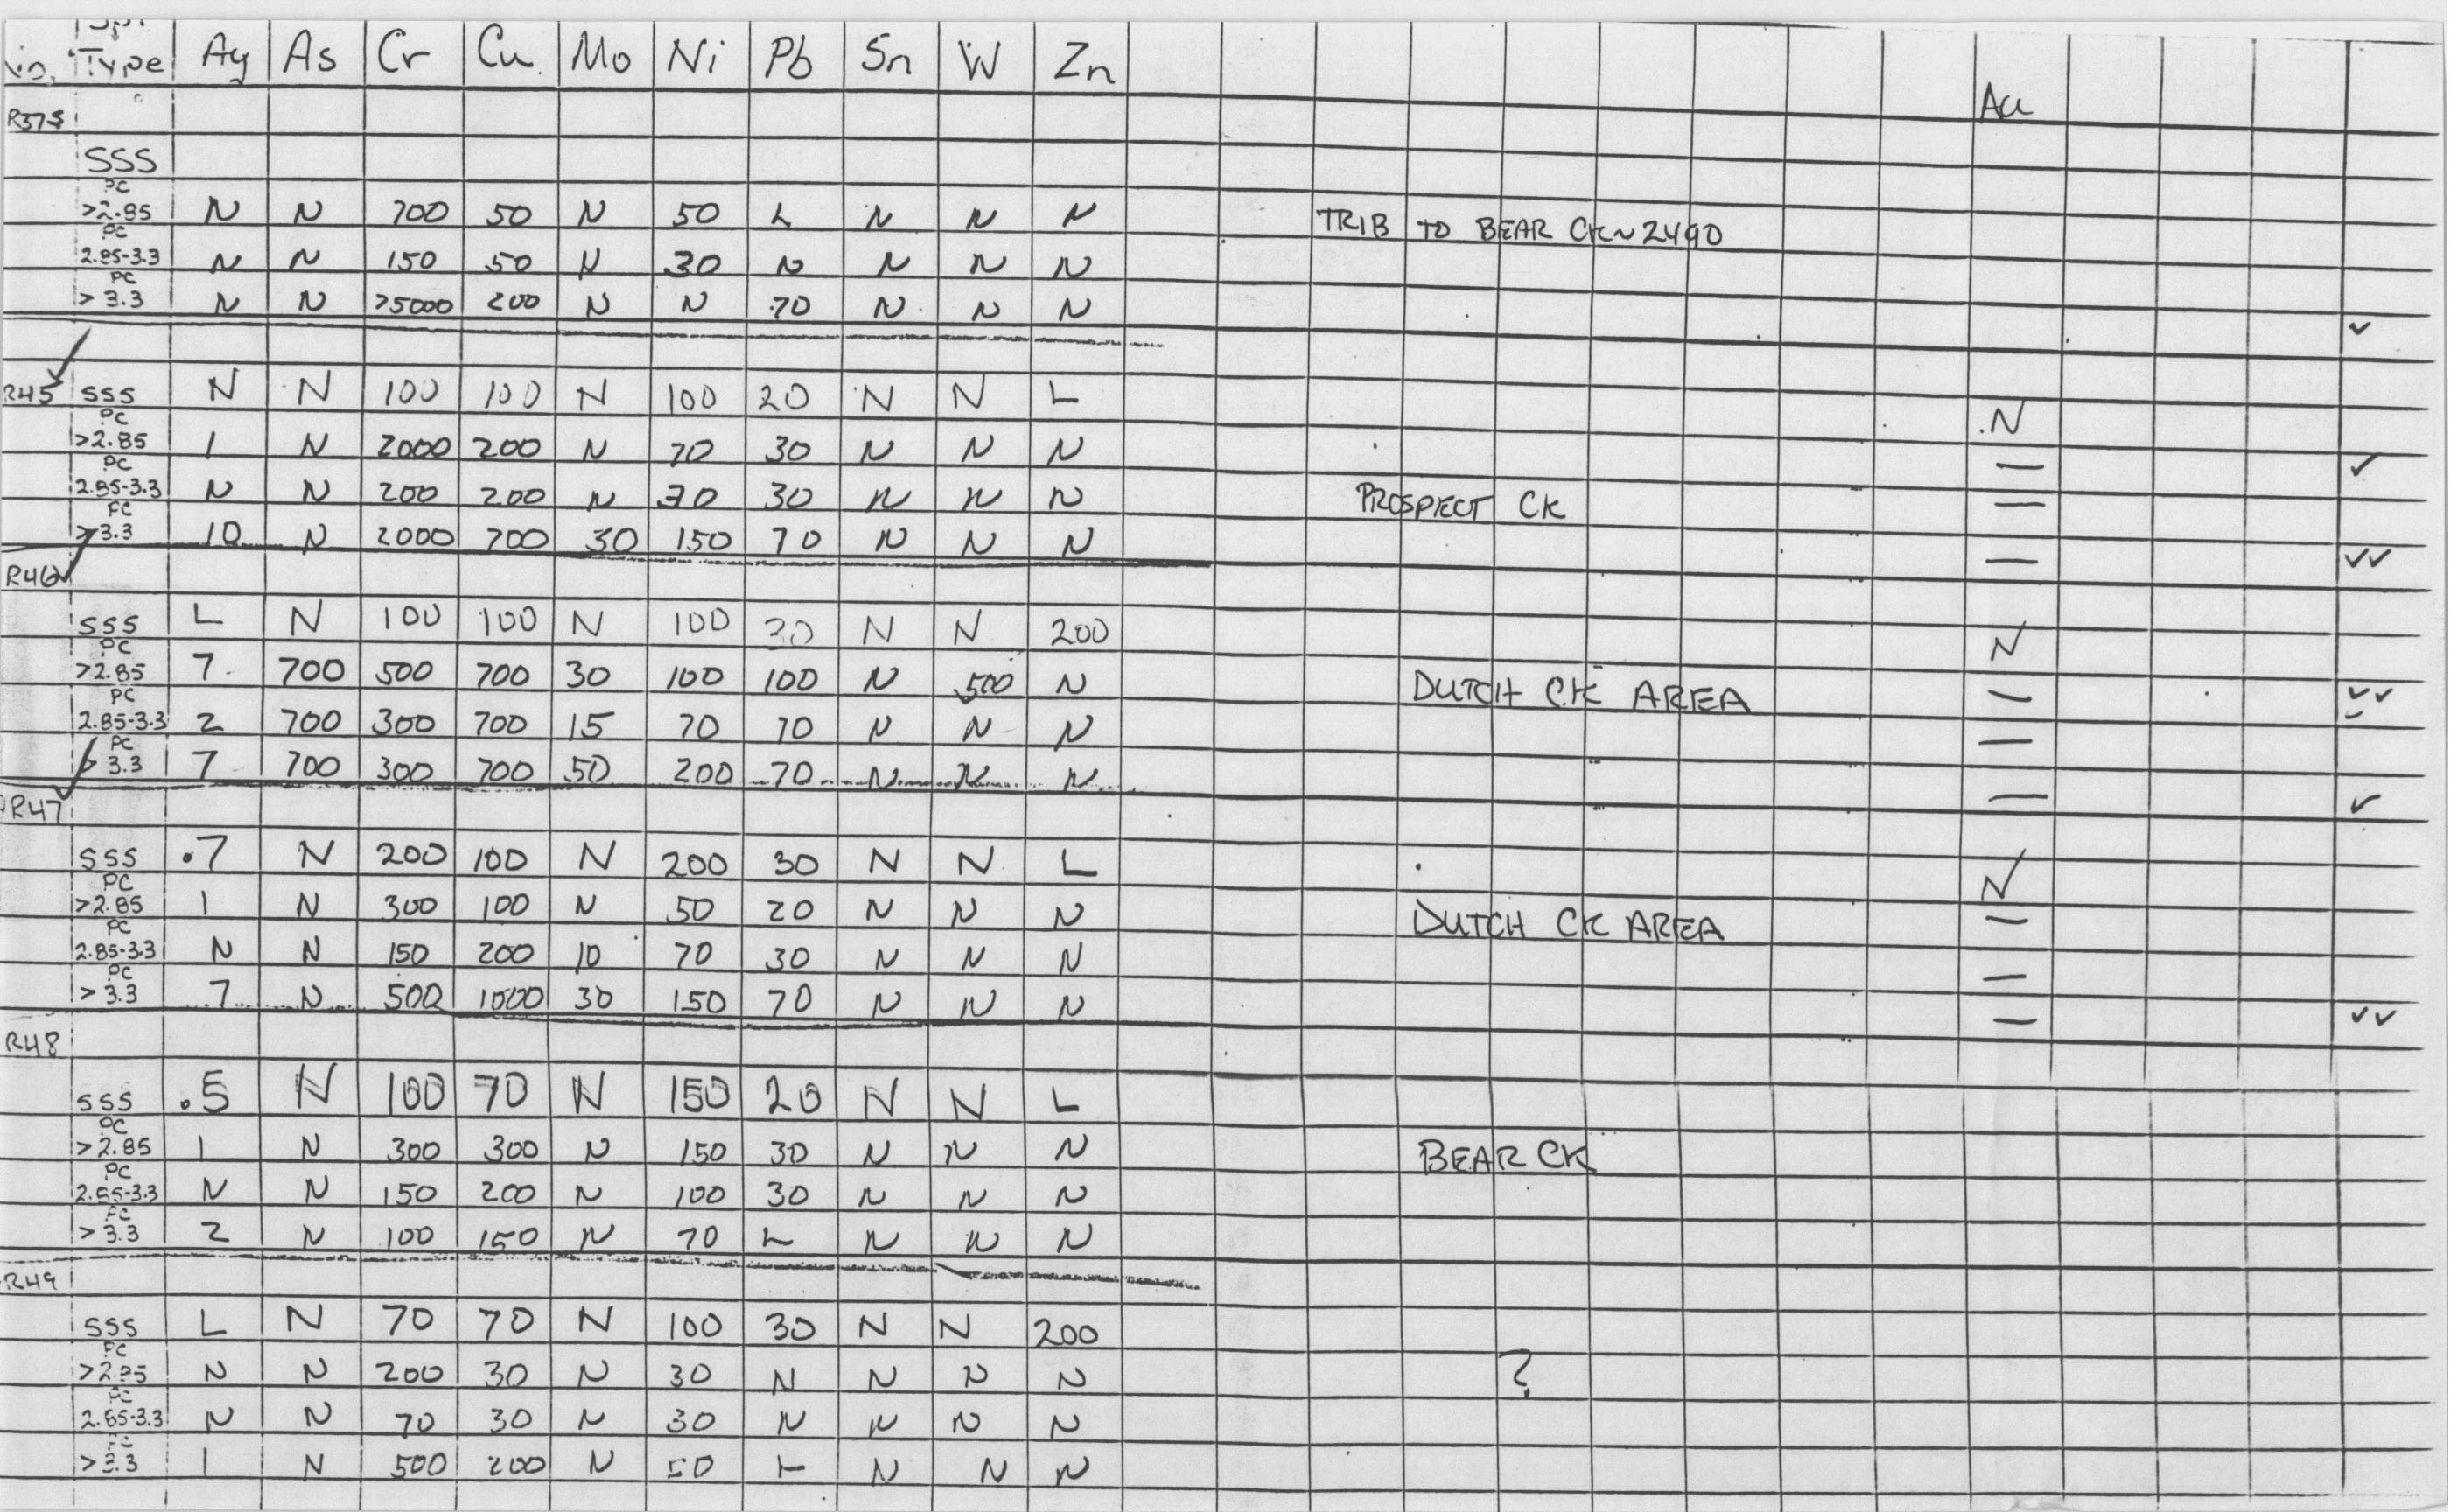 Type Ag As Cr Cu Mo Ni Pb Sn W Zn
Au
R37S
SSS
PC
>2.85 N N 700 50 N 50 L N N N TRIB TO BEAR CK ~ 2490
PC
2.85-3.3 N N 150 50 N 30 N N N N
PC
>3.3 N N >5000 200 N N 70 N N N ✓
R45 ✓ SSS N N 100 100 N 100 20 N N L N
PC
>2.85 1 N 2000 200 N 70 30 N N N — ✓
PC
2.85-3.3 N N 200 200 N 70 30 N N N PROSPECT CK —
PC
>3.3 10 N 2000 700 30 150 70 N N N — ✓✓
R46 ✓
SSS L N 100 100 N 100 30 N N 200 N
PC
>2.85 7 700 500 700 30 100 100 N 500 N DUTCH CK AREA — ✓✓
PC
2.85-3.3 2 700 300 700 15 70 70 N N N —
PC
>3.3 7 700 300 700 50 200 70 N N N — ✓
R47 ✓
SSS .7 N 200 100 N 200 30 N N L N
PC
>2.85 1 N 300 100 N 50 20 N N N DUTCH CK AREA —
PC
2.85-3.3 N N 150 200 10 70 30 N N N —
PC
>3.3 7 N 500 1000 30 150 70 N N N — ✓✓
R48
SSS .5 N 100 70 N 150 20 N N L
PC
>2.85 1 N 300 300 N 150 30 N N N BEAR CK
PC
2.85-3.3 N N 150 200 N 100 30 N N N
PC
>3.3 2 N 100 150 N 70 L N N N
R49
SSS L N 70 70 N 100 30 N N 200
PC
>2.85 N N 200 30 N 30 N N N N ?
PC
2.85-3.3 N N 70 30 N 30 N N N N
>3.3 1 N 500 200 N 50 L N N N